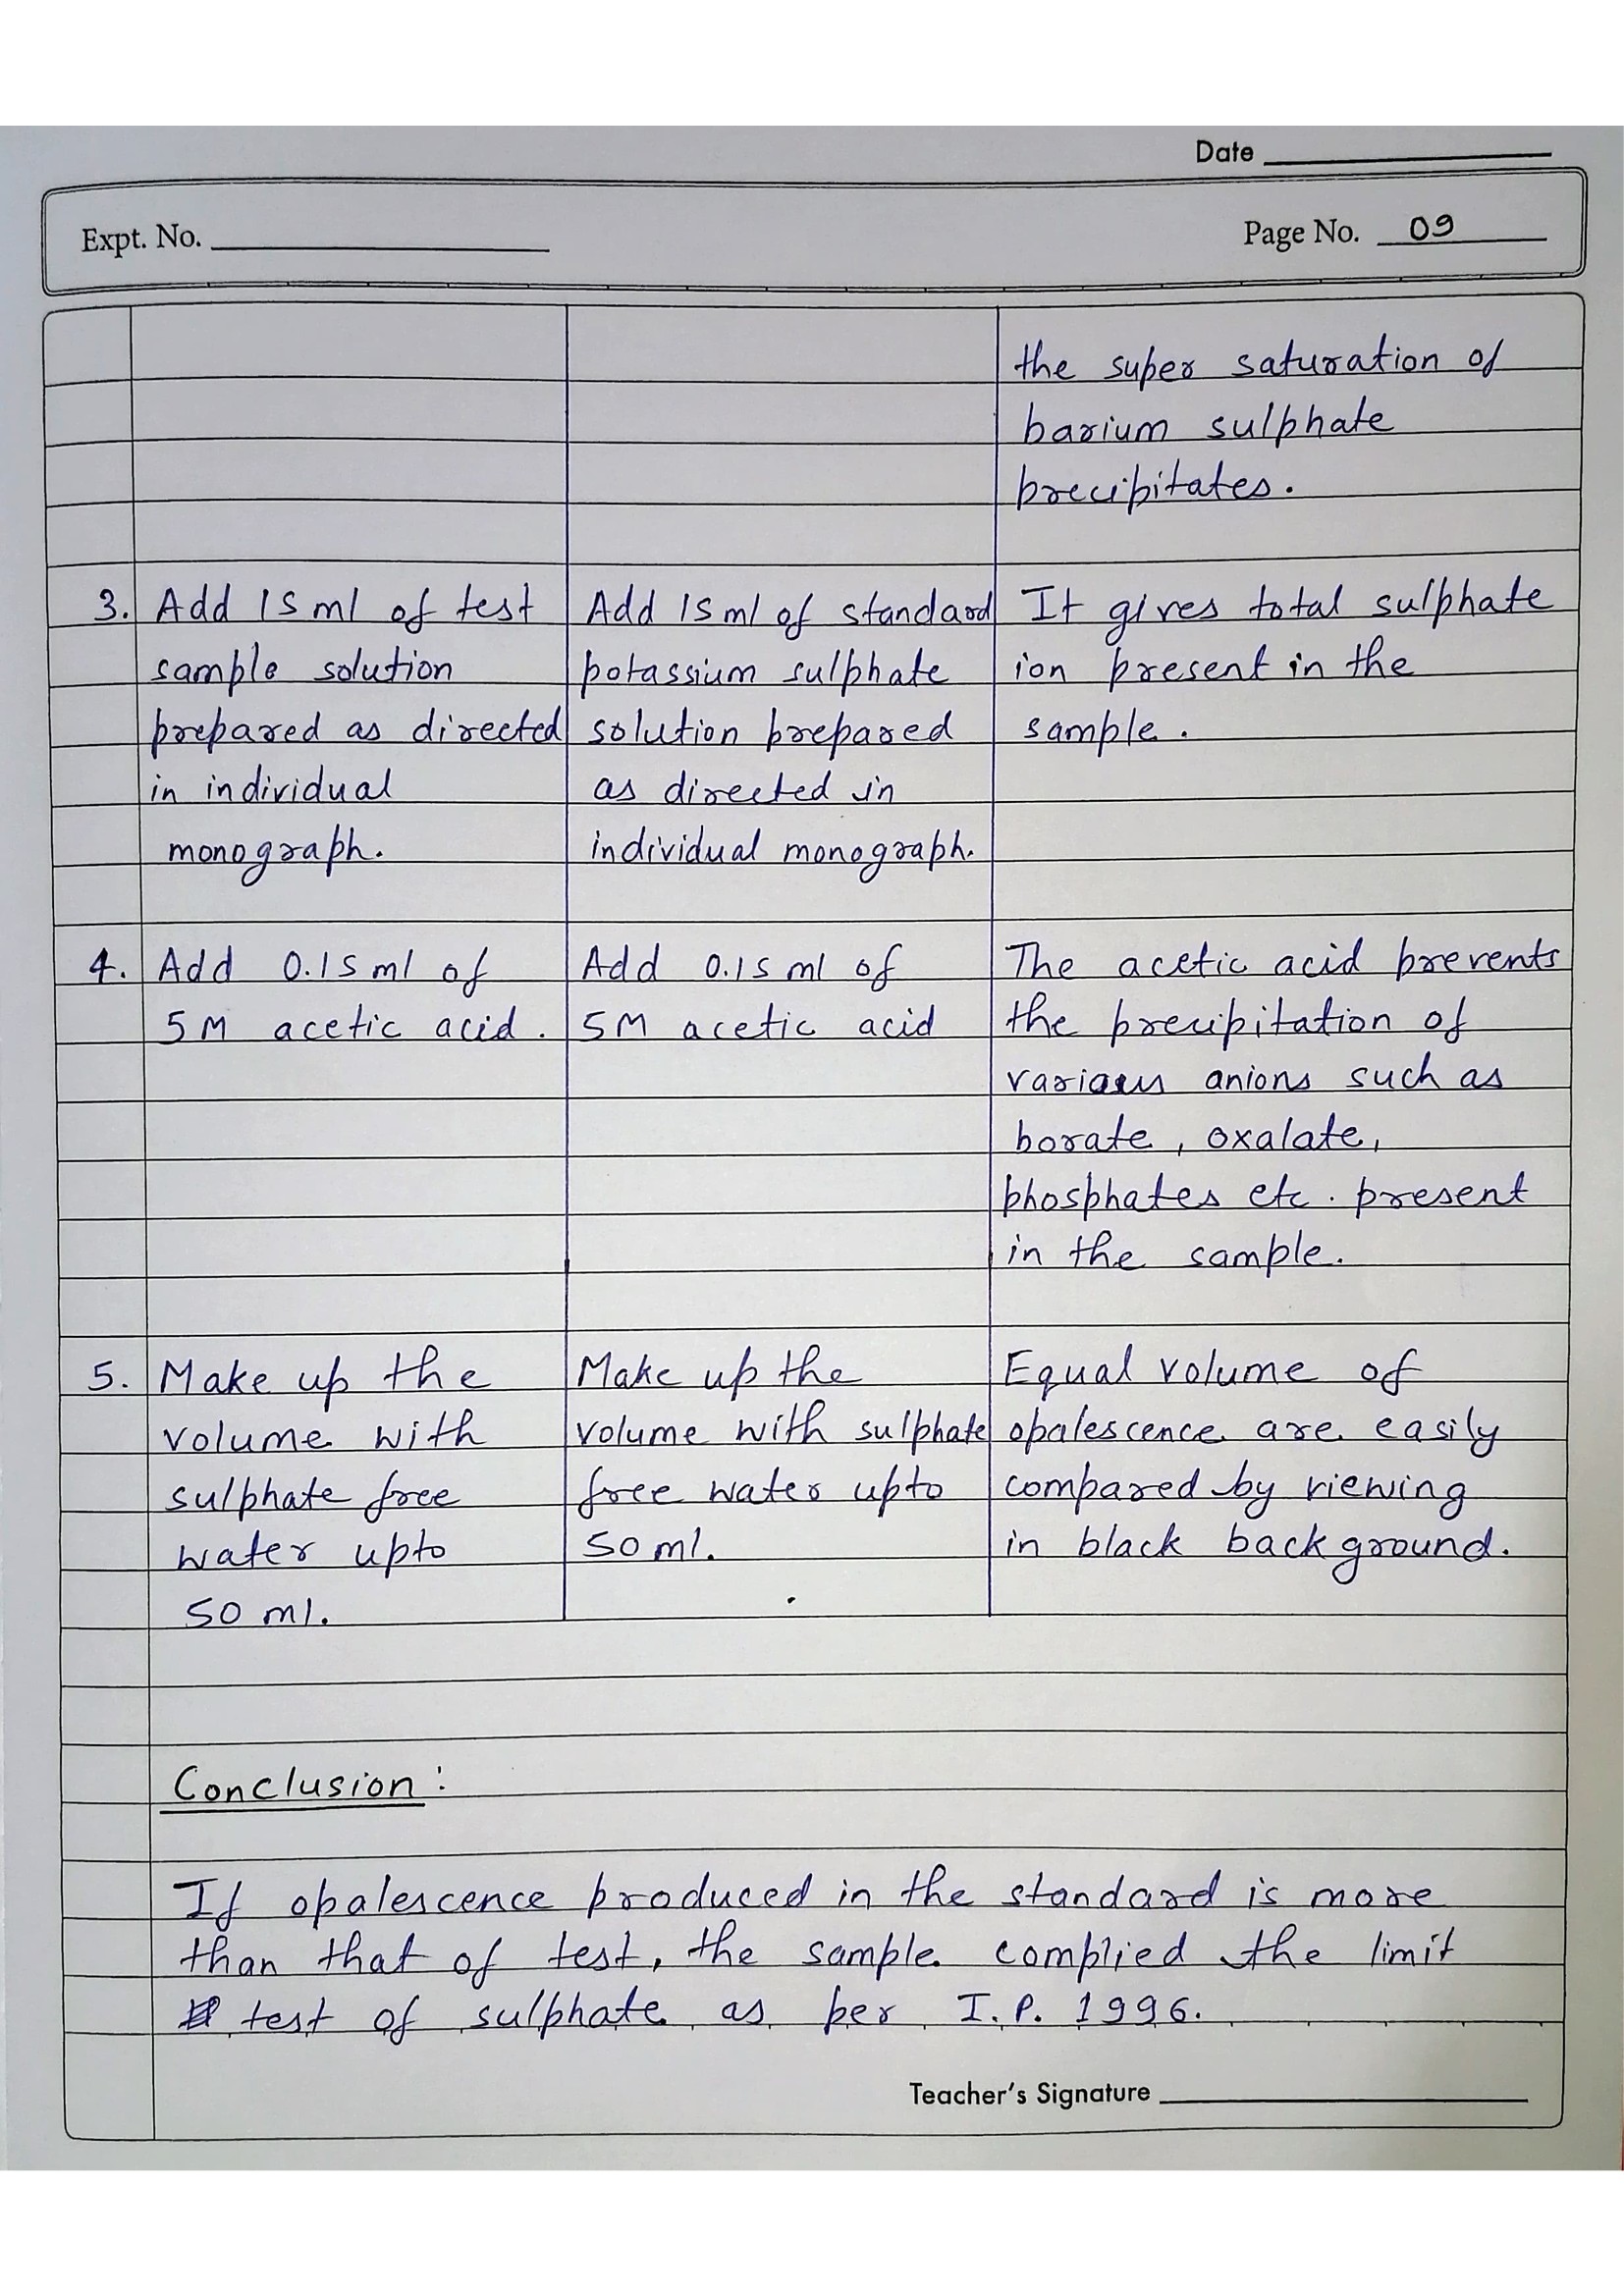 Date
Expt. No.
Page No. 09
the super saturation of
barium sulphate
precipitates.
3. Add 15 ml of test
sample solution
prepared as directed
in individual
monograph.
Add 15 ml of standard
potassium sulphate
solution prepared
as directed in
individual monograph.
It gives total sulphate
ion present in the
sample.
4. Add 0.15 ml of
5M acetic acid.
Add 0.15 ml of
5M acetic acid
The acetic acid prevents
the precipitation of
various anions such as
borate, oxalate,
phosphates etc. present
in the sample.
5. Make up the
volume with
sulphate free
water upto
50 ml.
Make up the
volume with sulphate
free water upto
50 ml.
Equal volume of
opalescence are easily
compared by viewing
in black background.
Conclusion:
If opalescence produced in the standard is more
than that of test, the sample complied the limit
test of sulphate as per I.P. 1996.
Teacher's Signature